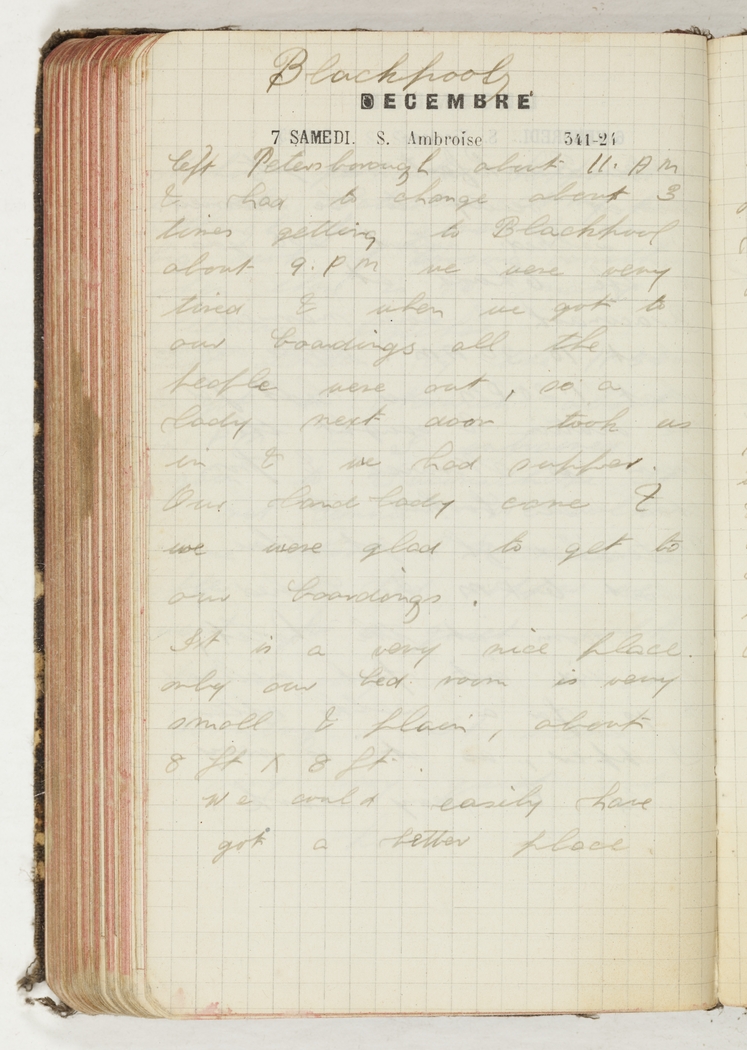 Blackpool
DECEMBRE
7 SAMEDI. S. Ambroise 341-24
left Petersborough about 11. AM
& had to change about 3
times getting to Blackpool
about 9. PM we were very
tired & when we got to
our boardings all the
people were out, so a
lady next door took us
in & we had supper.
Our land lady came &
we were glad to get to
our boardings.
Ist is a very nice place.
only our bed room is very
small & plain, about
8 ft X 8 ft.
We could easily have
got a better place